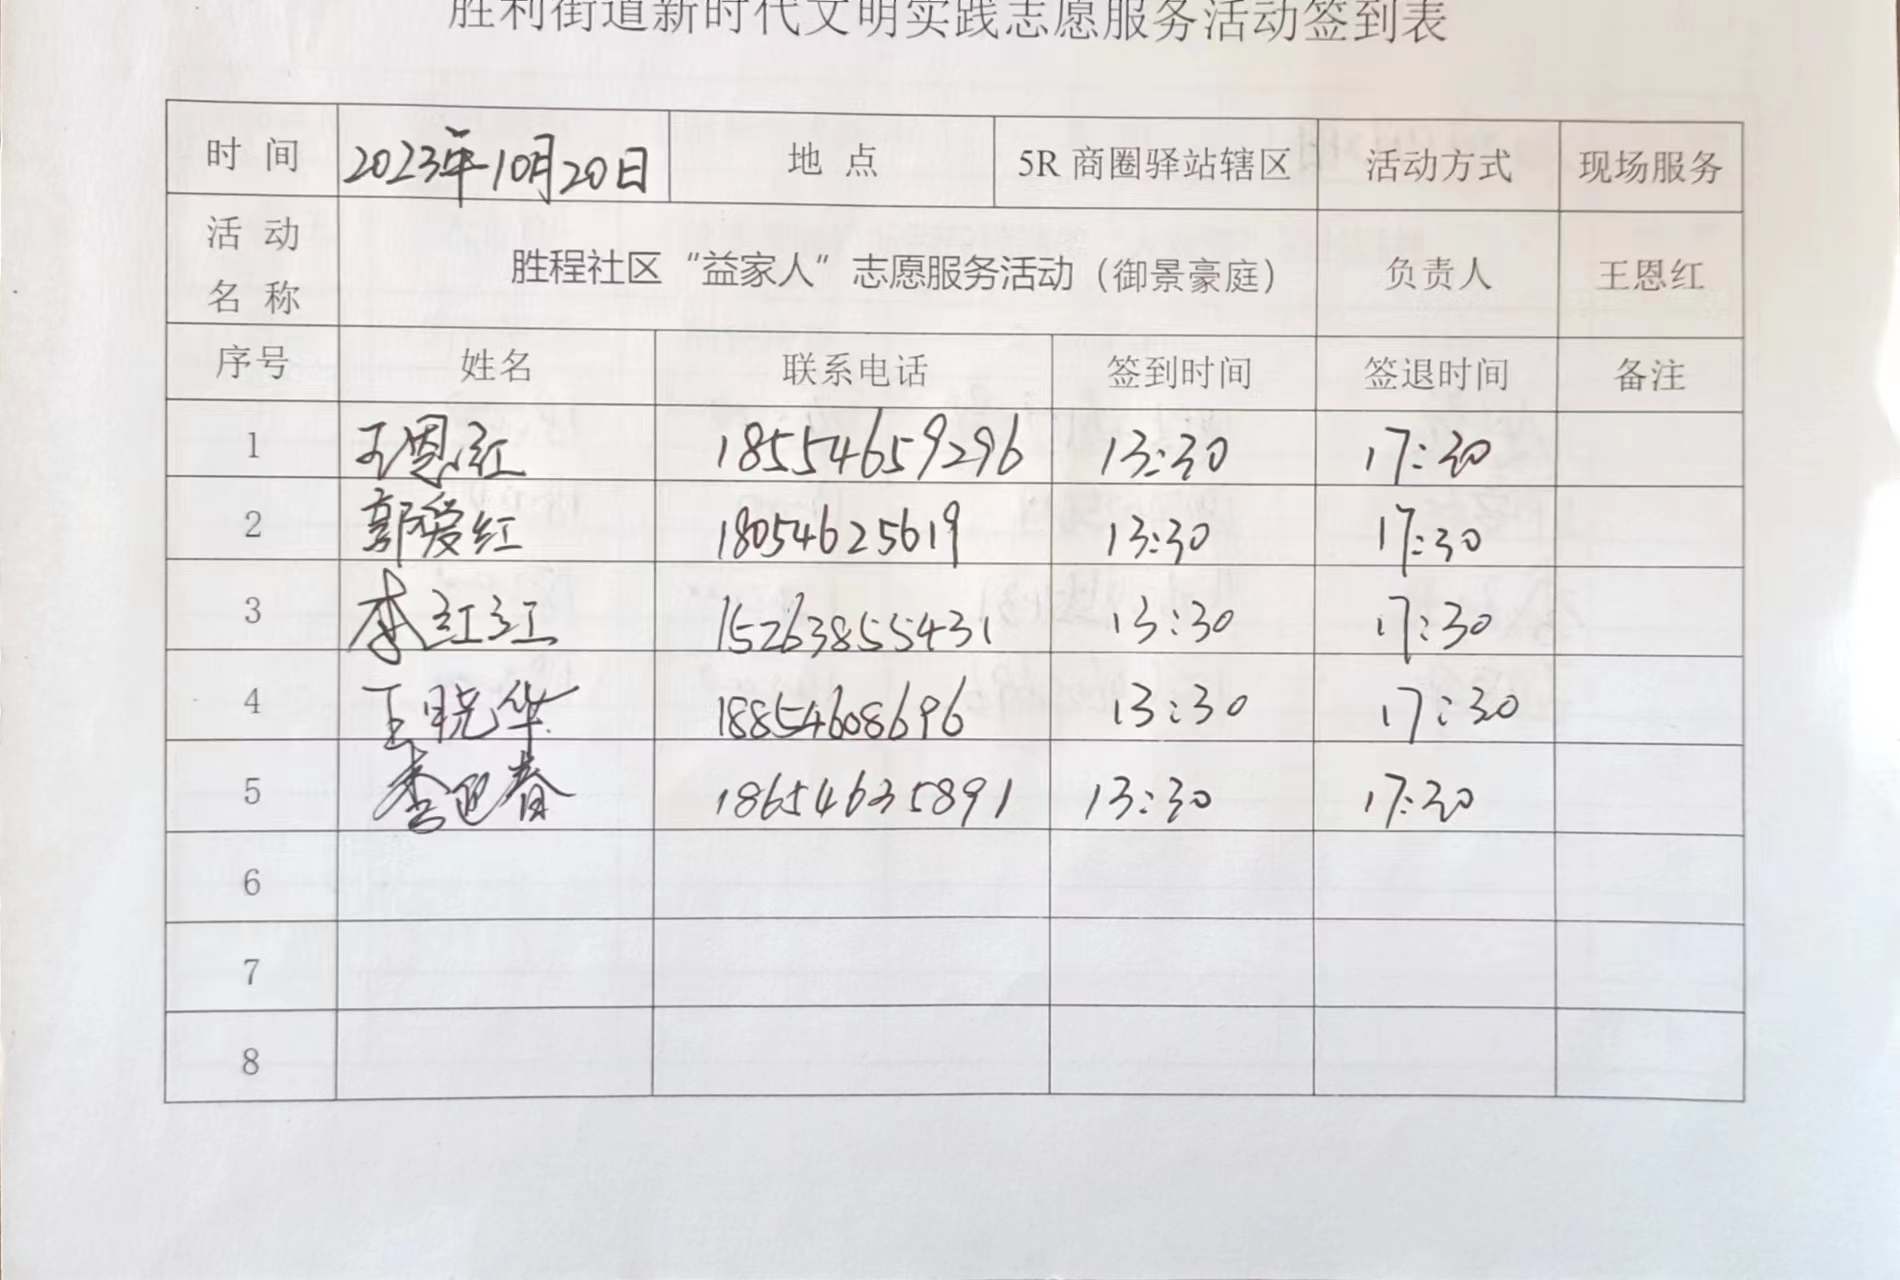 胜利街道新时代文明实践志愿服务活动签到表
时 间 2023年10月20日 地 点 5R 商圈驿站辖区 活动方式 现场服务
活 动
名 称 胜程社区“益家人”志愿服务活动（御景豪庭） 负责人 王恩红
序号 姓名 联系电话 签到时间 签退时间 备注
1 王恩红 18554659296 13:30 17:30
2 郭爱红 18054625619 13:30 17:30
3 李红江 15263855431 13:30 17:30
4 王晓华 18854608696 13:30 17:30
5 李迎春 18654635891 13:30 17:30
6
7
8